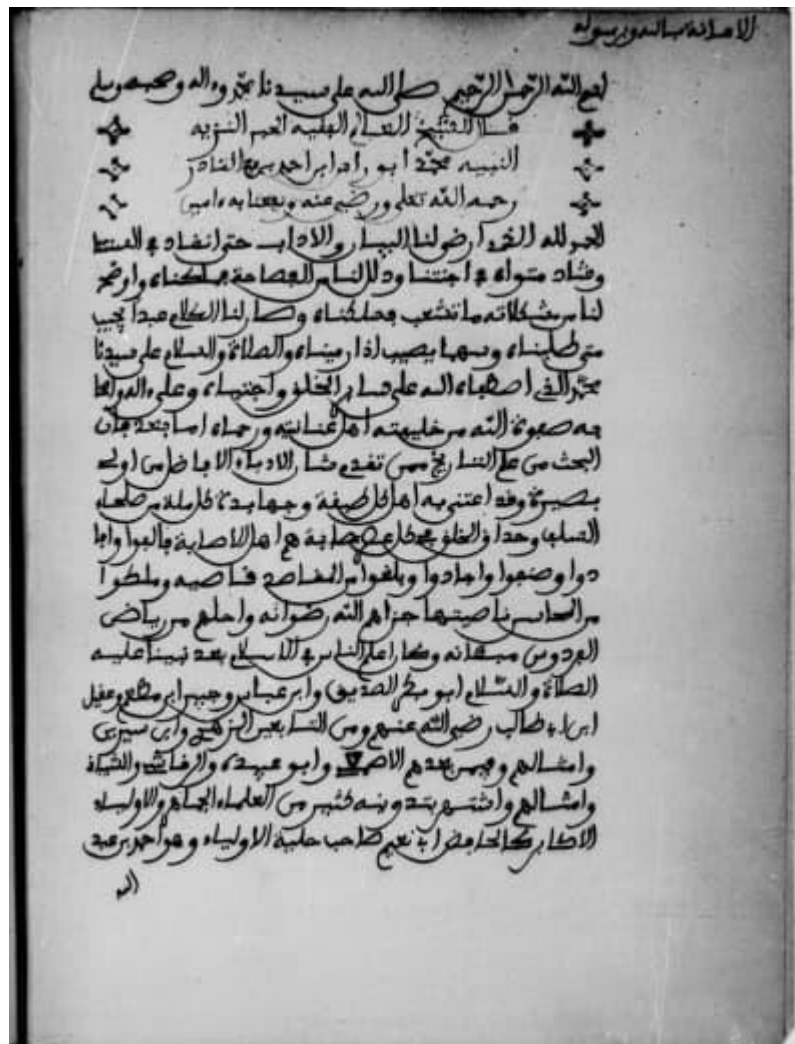 الاعانة بالله ورسوله
بسم الله الرحمن الرحيم صلى الله على سيدنا محمد وءاله وصحبه وسلم
قال الشيخ العالم الفقيه العلم النزيه
النبيه محمد أبو راس ابن احمد بن عبد القادر
رحمه الله تعلى ورضي عنه ونفعنا به ءامين
الحمد لله الذي ارض لنا البيان والاداب حتى انقاد
وشاد مثواه في اجنتنا ودلل لنا من الفصاحة فسلكناه واوضح
لنا من مشكلاته ما تشعب فملكناه وصار لنا الكلام عبدا يجيب
متى طلبناه وسهما يصيب اذا رميناه والصلاة والسلام على سيدنا
محمد الذي اصطفاه الله على سائر الخلق واجتباه وعلى ءاله
صفوة الله من خليقته اهل عنايته ورحماه اما بعد فان
البحث من علم التاريخ ممن تقدم شان الادباء الافاضل من اولي
بصيرة وقد اعتنى به اهل كل طبقة وجهابذة كاملة من صلحاء
السلف وحذاق الخلف في كل عصابة هم اهل الاصابة فالفوا واجا
دوا وصنعوا واجادوا وبلغوا من المقاصد قاصيه وملكوا
من المحاسن ناصيتها جزاهم الله رضوانه واحلهم من رياض
الفردوس ميطانه وكان اعلم الناس في الاسلام بعد نبينا عليه
الصلاة والسلام ابو بكر الصديق وابن عباس وجبير ابن مطعم وعقيل
ابن ابي طالب رضي الله عنهم ومن التابعين الزهري وابن سيرين
وامثالهم وممن بعدهم الاصمعي وابو عبيدة والرقاشي
وامثالهم واشتهر بتدوينه كثير من العلماء الجماهر والاولياء
الاكابر كالحافظ ابي نعيم صاحب حلية الاولياء وهو احمد بن عبد
الله